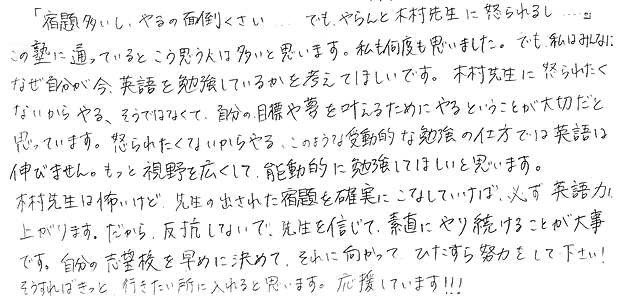 「宿題多いし、やるの面倒くさい……でも、やらんと木村先生に怒られるし……。」
この塾に通っているとこう思う人は多いと思います。私も何度も思いました。でも、私はみんなに
なぜ自分が今、英語を勉強しているかを考えてほしいです。木村先生に怒られたく
ないからやる、そうではなくて、自分の目標や夢を叶えるためにやるということが大切だと
思っています。怒られたくないからやる、このような受動的な勉強の仕方では英語は
伸びません。もっと視野を広くして、能動的に勉強してほしいと思います。
木村先生は怖いけど、先生の出された宿題を確実にこなしていけば、必ず英語力は
上がります。だから、反抗しないで、先生を信じて、素直にやり続けることが大事
です。自分の志望校を早めに決めて、それに向かって、ひたすら努力をして下さい!
そうすればきっと、行きたい所に入れると思います。応援しています!!!